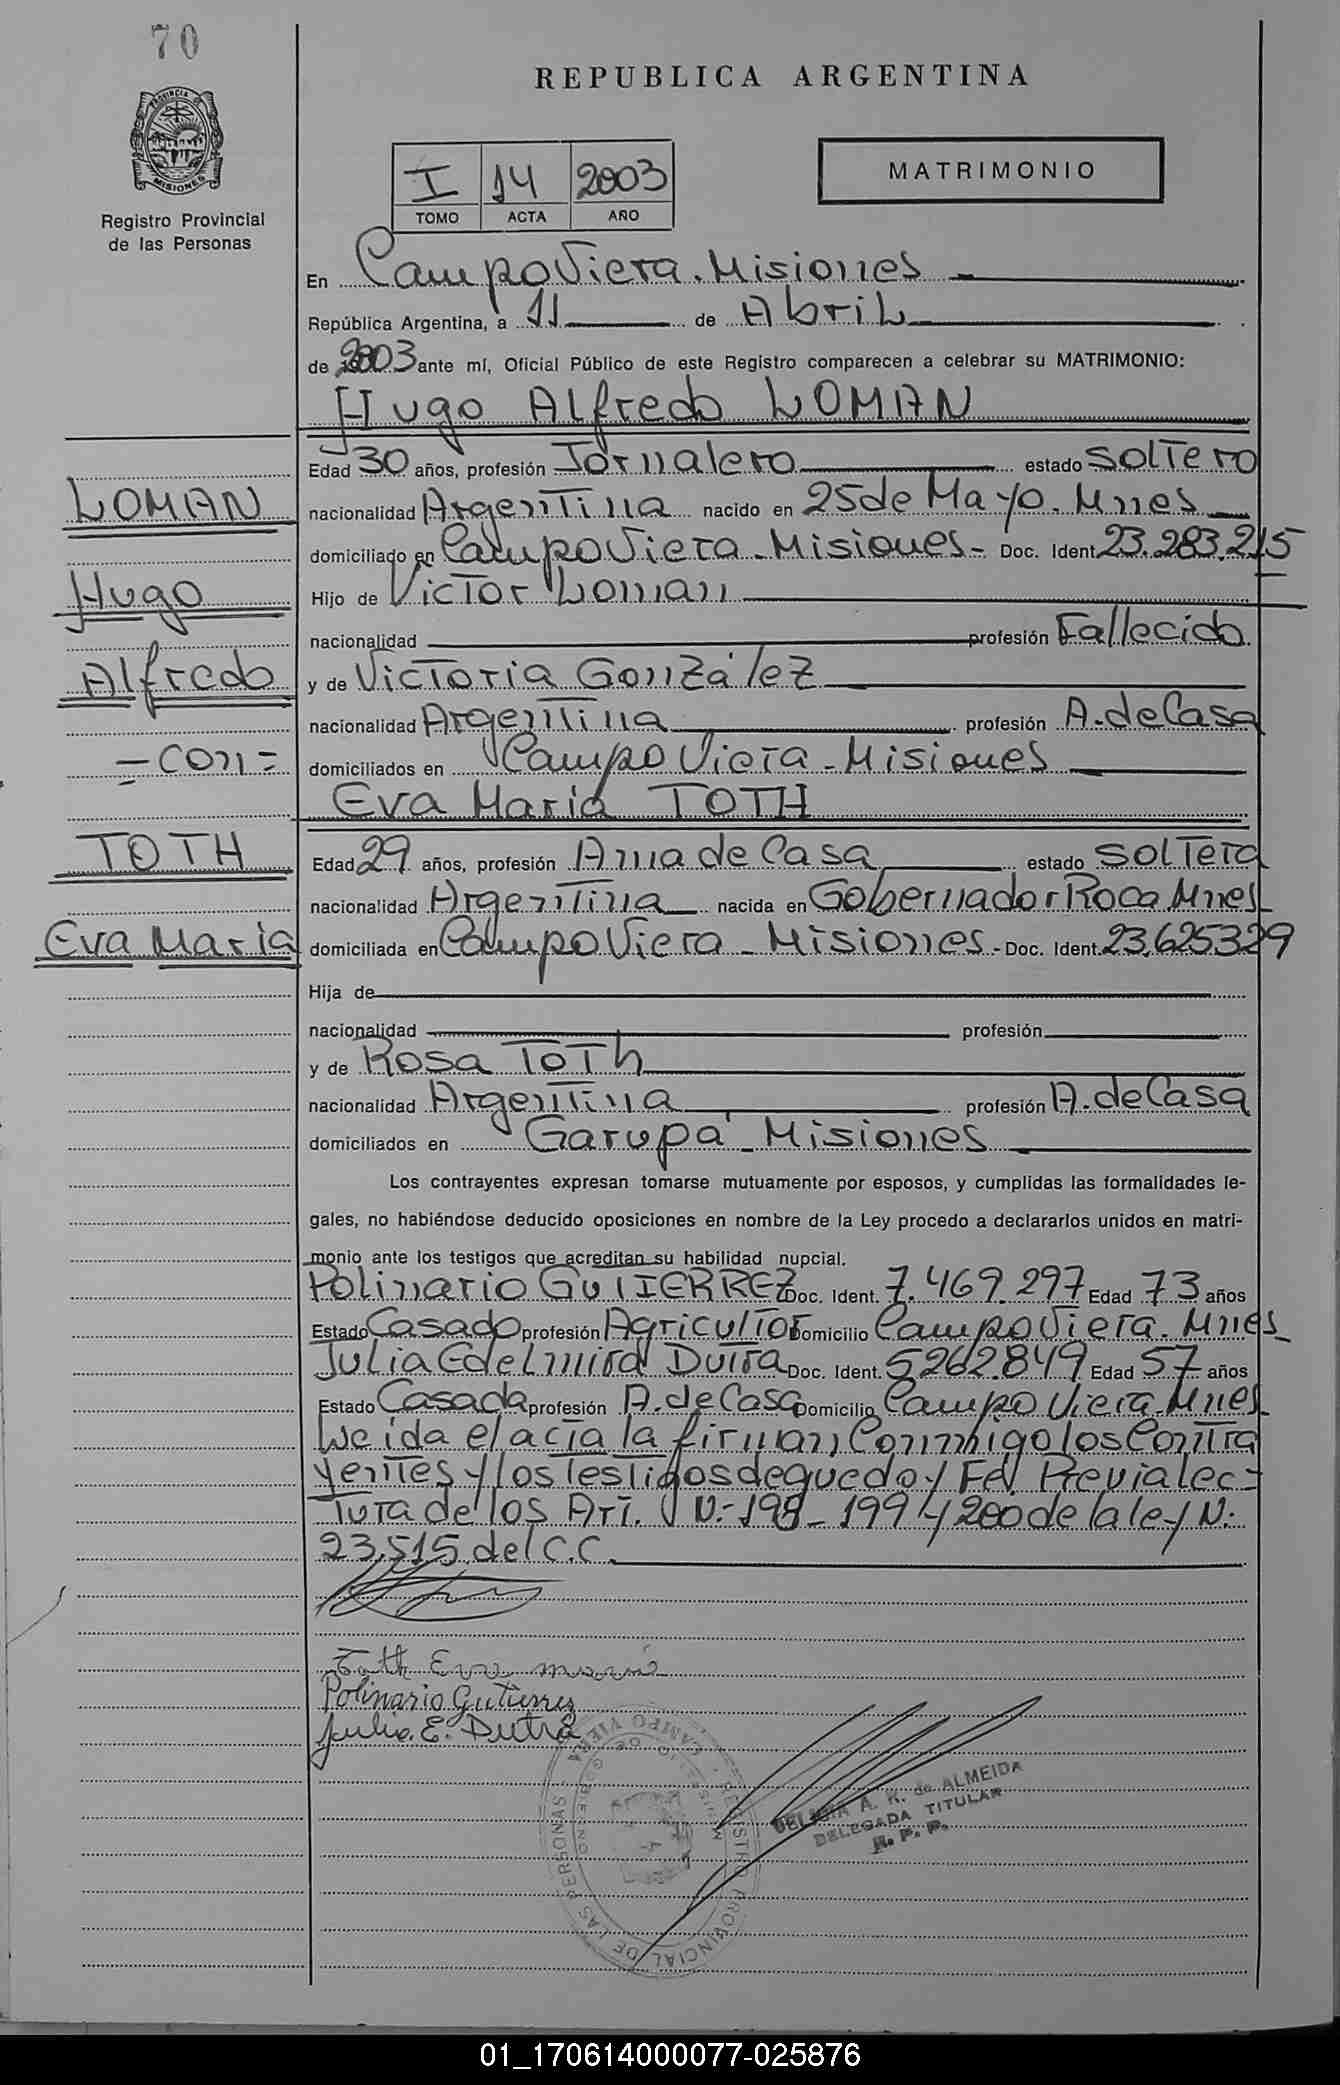 70
REPUBLICA ARGENTINA
PROVINCIA DE MISIONES
Registro Provincial
de las Personas
I 14 2003
TOMO ACTA AÑO
MATRIMONIO
En Campo Viera. Misiones
República Argentina, a 11 de Abril
de 2003 ante mí, Oficial Público de este Registro comparecen a celebrar su MATRIMONIO:
Hugo Alfredo LOMAN
Edad 30 años, profesión Jornalero estado Soltero
LOMAN
nacionalidad Argentina nacido en 25 de Mayo. Mnes
domiciliado en Campo Viera - Misiones - Doc. Ident. 23.283.215
Hugo
Hijo de Victor Loman
nacionalidad profesión Fallecido
Alfredo
y de Victoria González
nacionalidad Argentina profesión A. de Casa
- con =
domiciliados en Campo Viera - Misiones
Eva Maria TOTH
TOTH
Edad 29 años, profesión Ama de Casa estado Soltera
nacionalidad Argentina nacida en Gobernador Roca Mnes
Eva Maria
domiciliada en Campo Viera - Misiones - Doc. Ident. 23.625329
Hija de
nacionalidad profesión
y de Rosa Toth
nacionalidad Argentina profesión A. de Casa
domiciliados en Garupá - Misiones
Los contrayentes expresan tomarse mutuamente por esposos, y cumplidas las formalidades le-
gales, no habiéndose deducido oposiciones en nombre de la Ley procedo a declararlos unidos en matri-
monio ante los testigos que acreditan su habilidad nupcial.
Polinario GUTIERREZ Doc. Ident. 7.469.297 Edad 73 años
Estado Casado profesión Agricultor Domicilio Campo Viera. Mnes
Julia Edelmira Dutra Doc. Ident. 5262.849 Edad 57 años
Estado Casada profesión A. de Casa Domicilio Campo Viera - Mnes
Leida el acta la firman Conmigo los Contra
yentes y los testigos de que doy Fé. Previa lec=
tura de los Art. N:-198-199 y 200 de la ley N:
23.515 del C.C.
Toth Eva maria
Polinario Gutierrez
Julia. E. Dutra
REGISTRO PROVINCIAL DE LAS PERSONAS CAMPO VIERA
A. K. de ALMEIDA
DELEGADA TITULAR
R. P. P.
01_170614000077-025876